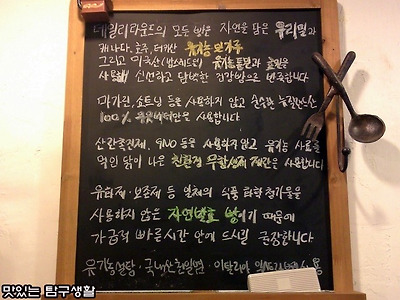 데일리라운드의 모든 빵은 자연을 담은 우리밀과
캐나다, 호주, 터키산 유기농 밀가루
그리고 이축산 유기농통밀과 호밀을
사용해 신선하고 담백한 건강빵으로 만듭니다
마가린, 쇼트닝 등을 사용하지 않고 순수한 뉴질랜드산
100% 버터만을 사용합니다
산란촉진제, GMO 등을 사용하지 않고 유기농 사료를
먹인 닭이 나은 친환경 무항생제 계란을 사용합니다
유화제·보존제 등 일체의 식품 화학첨가물을
사용하지 않은 자연발효 빵이기 때문에
가급적 빠른시간 안에 드시길 권장합니다
유기농설탕·국내산천일염·이탈리아
맛있는 탐구생활